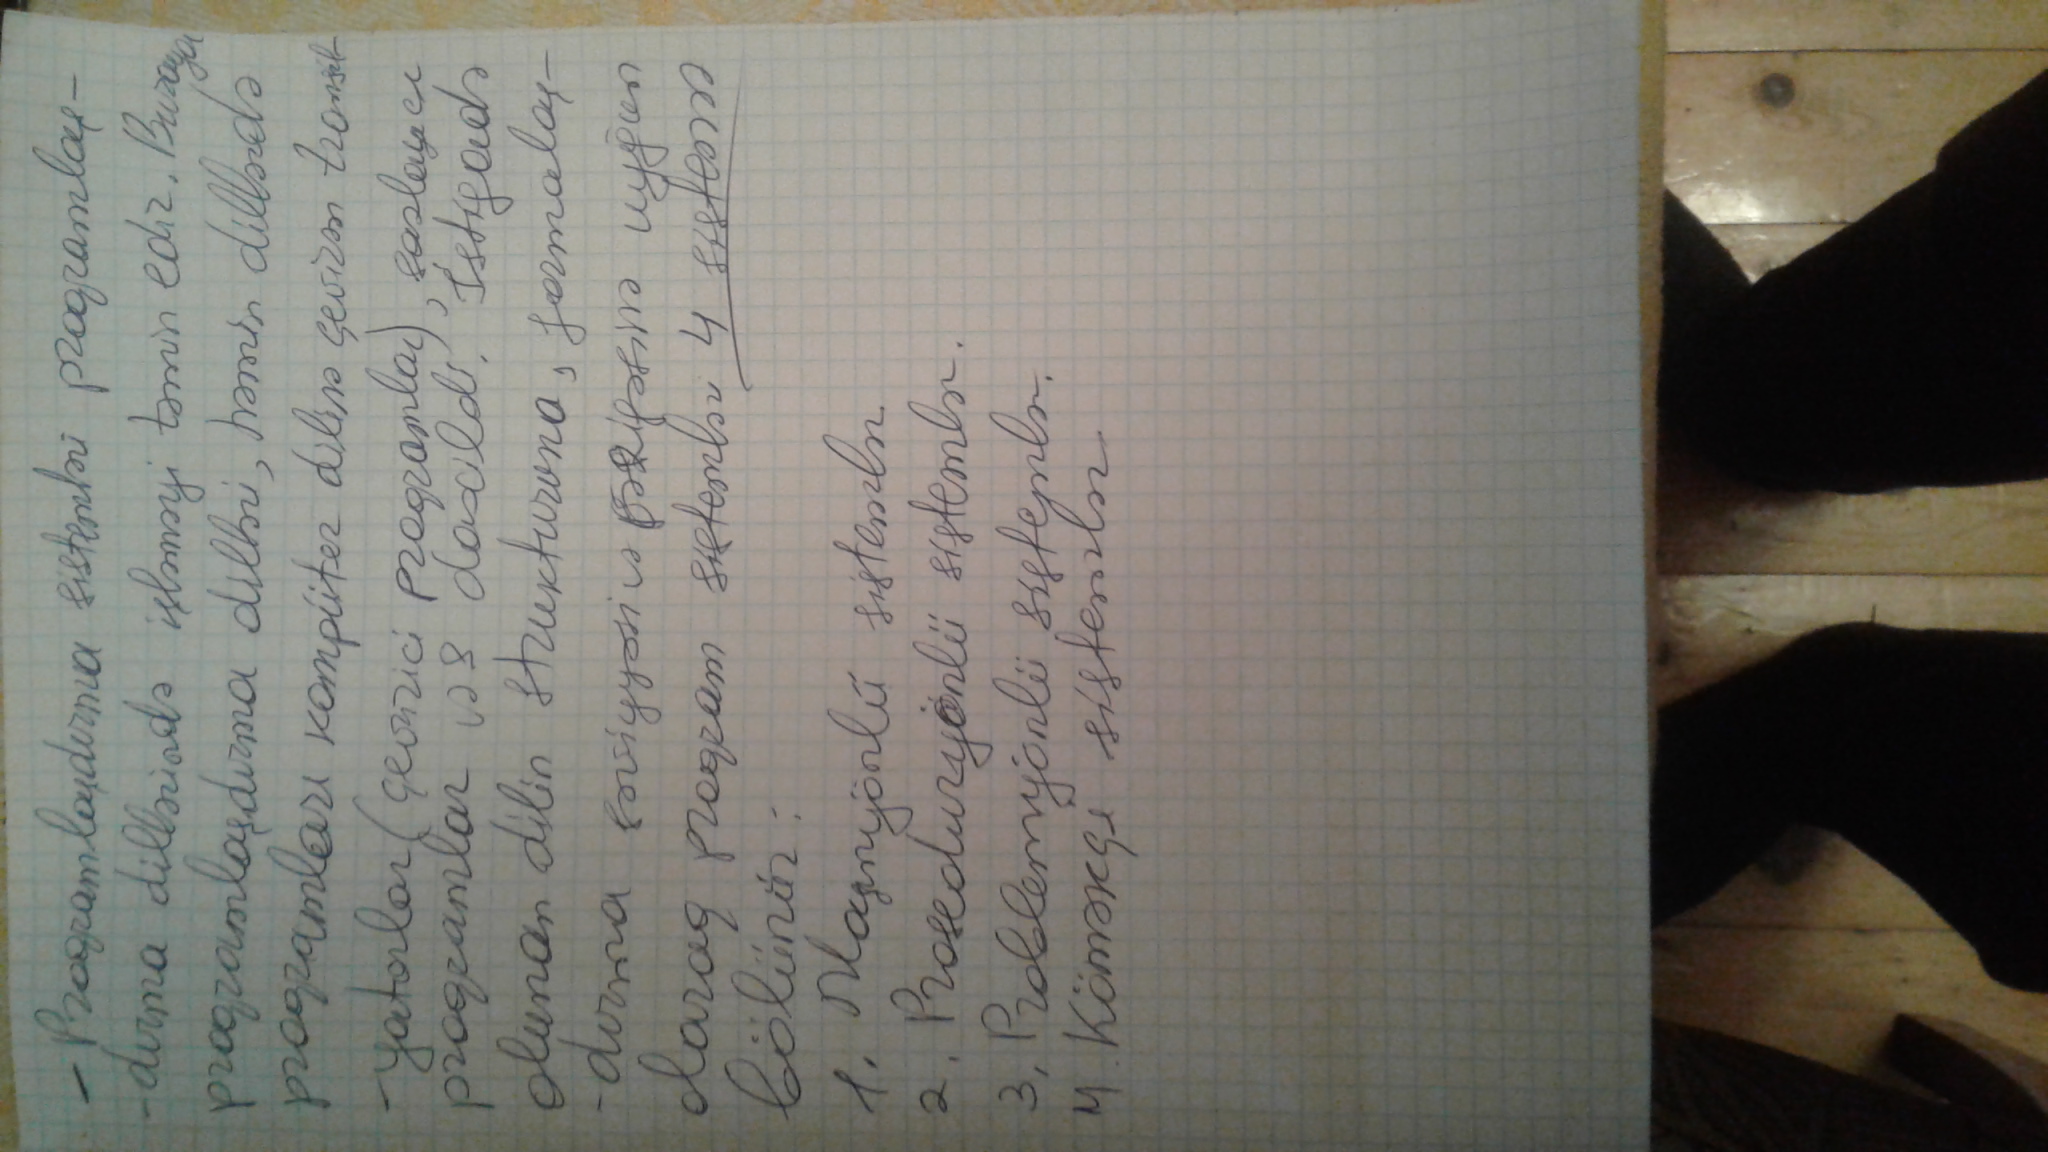 – Programlaşdırma sistemləri programlaş-
-dırma dillərində işləməyi təmin edir. Buraya
programlaşdırma dilləri, həmin dillərdə
programları kompüter dilinə çevirən transl-
-yatorlar (çevirici programlar), sazlayıcı
programlar və s daxildi. İstifadə
olunan dilin strukturuna, formalaş-
-dırma səviyyəsi və uyğun
olaraq program sistemlər 4 sistemə
bölünür:
1. Maşınyönlü sistemlər
2. Proseduryönlü sistemlər.
3. Problemyönlü sistemlər.
4. Köməkçi sistemlər.